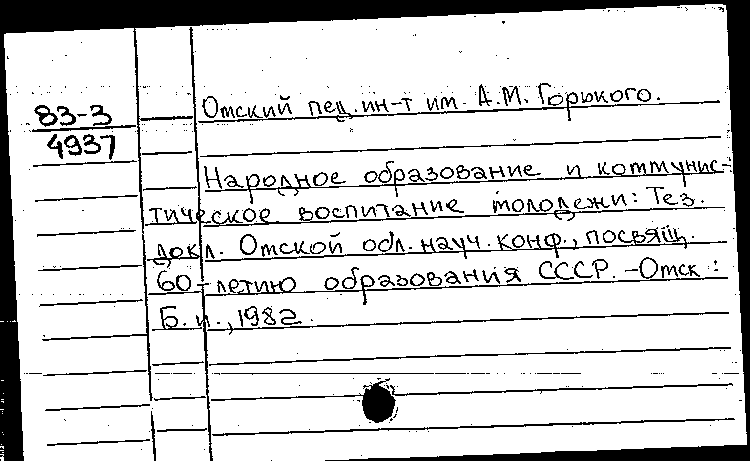 83-3
4937
Омский пед.ин-т им. А.М. Горького.
Народное образование и коммунис-
тическое воспитание молодежи: Тез.
докл. Омской обл. науч. конф., посвящ.
60-летию образования СССР. -Омск:
Б. и., 1982.